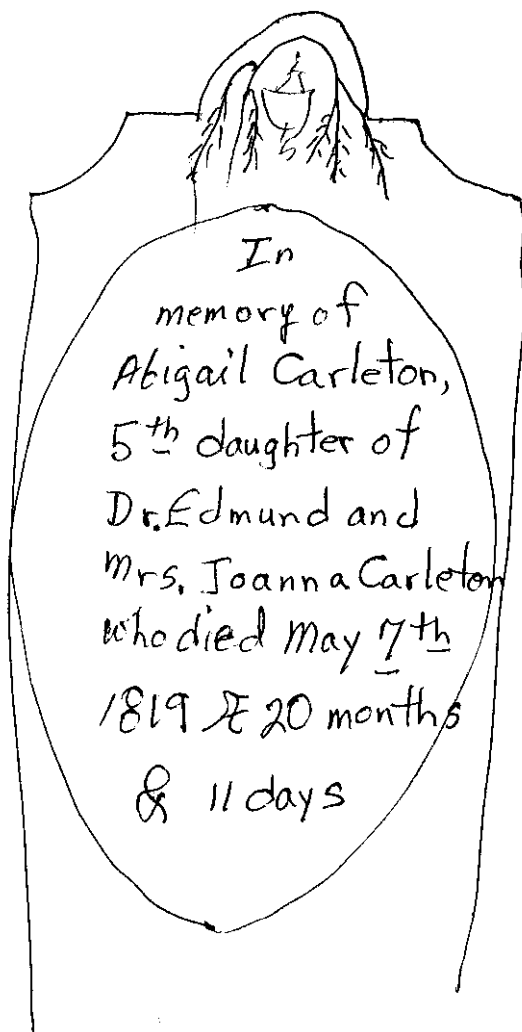 In
memory of
Abigail Carleton,
5th daughter of
Dr. Edmund and
Mrs. Joanna Carleton
who died May 7th
1819 Æ 20 months
& 11 days